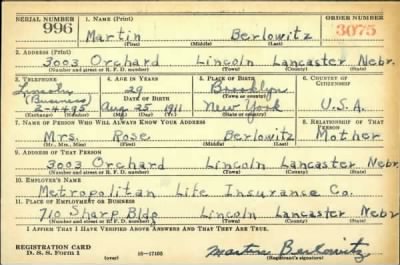 SERIAL NUMBER 1. NAME (Print) ORDER NUMBER
996 Martin Berlowitz 3075
(First) (Middle) (Last)
2. ADDRESS (Print)
3003 Orchard Lincoln Lancaster Nebr.
(Number and street or R. F. D. number) (Town) (County) (State)
3. TELEPHONE 4. AGE IN YEARS 5. PLACE OF BIRTH 6. COUNTRY OF CITIZENSHIP
Lincoln 29 Brooklyn
(Business) DATE OF BIRTH (Town or county)
2-4495 Aug 25 1911 New York U.S.A.
(Exchange) (Number) (Mo.) (Day) (Yr.) (State or country)
7. NAME OF PERSON WHO WILL ALWAYS KNOW YOUR ADDRESS 8. RELATIONSHIP OF THAT PERSON
Mrs. Rose Berlowitz Mother
(Mr., Mrs., Miss) (First) (Middle) (Last)
9. ADDRESS OF THAT PERSON
3003 Orchard Lincoln Lancaster Nebr.
(Number and street or R. F. D. number) (Town) (County) (State)
10. EMPLOYER'S NAME
Metropolitan Life Insurance Co.
11. PLACE OF EMPLOYMENT OR BUSINESS
710 Sharp Bldg Lincoln Lancaster Nebr
(Number and street or R. F. D. number) (Town) (County) (State)
I AFFIRM THAT I HAVE VERIFIED ABOVE ANSWERS AND THAT THEY ARE TRUE.
REGISTRATION CARD
D. S. S. Form 1 (over) 16-17105 Martin Berlowitz
(Registrant's signature)